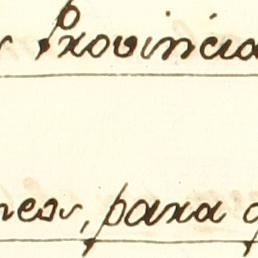 s Provincia
neos, para q